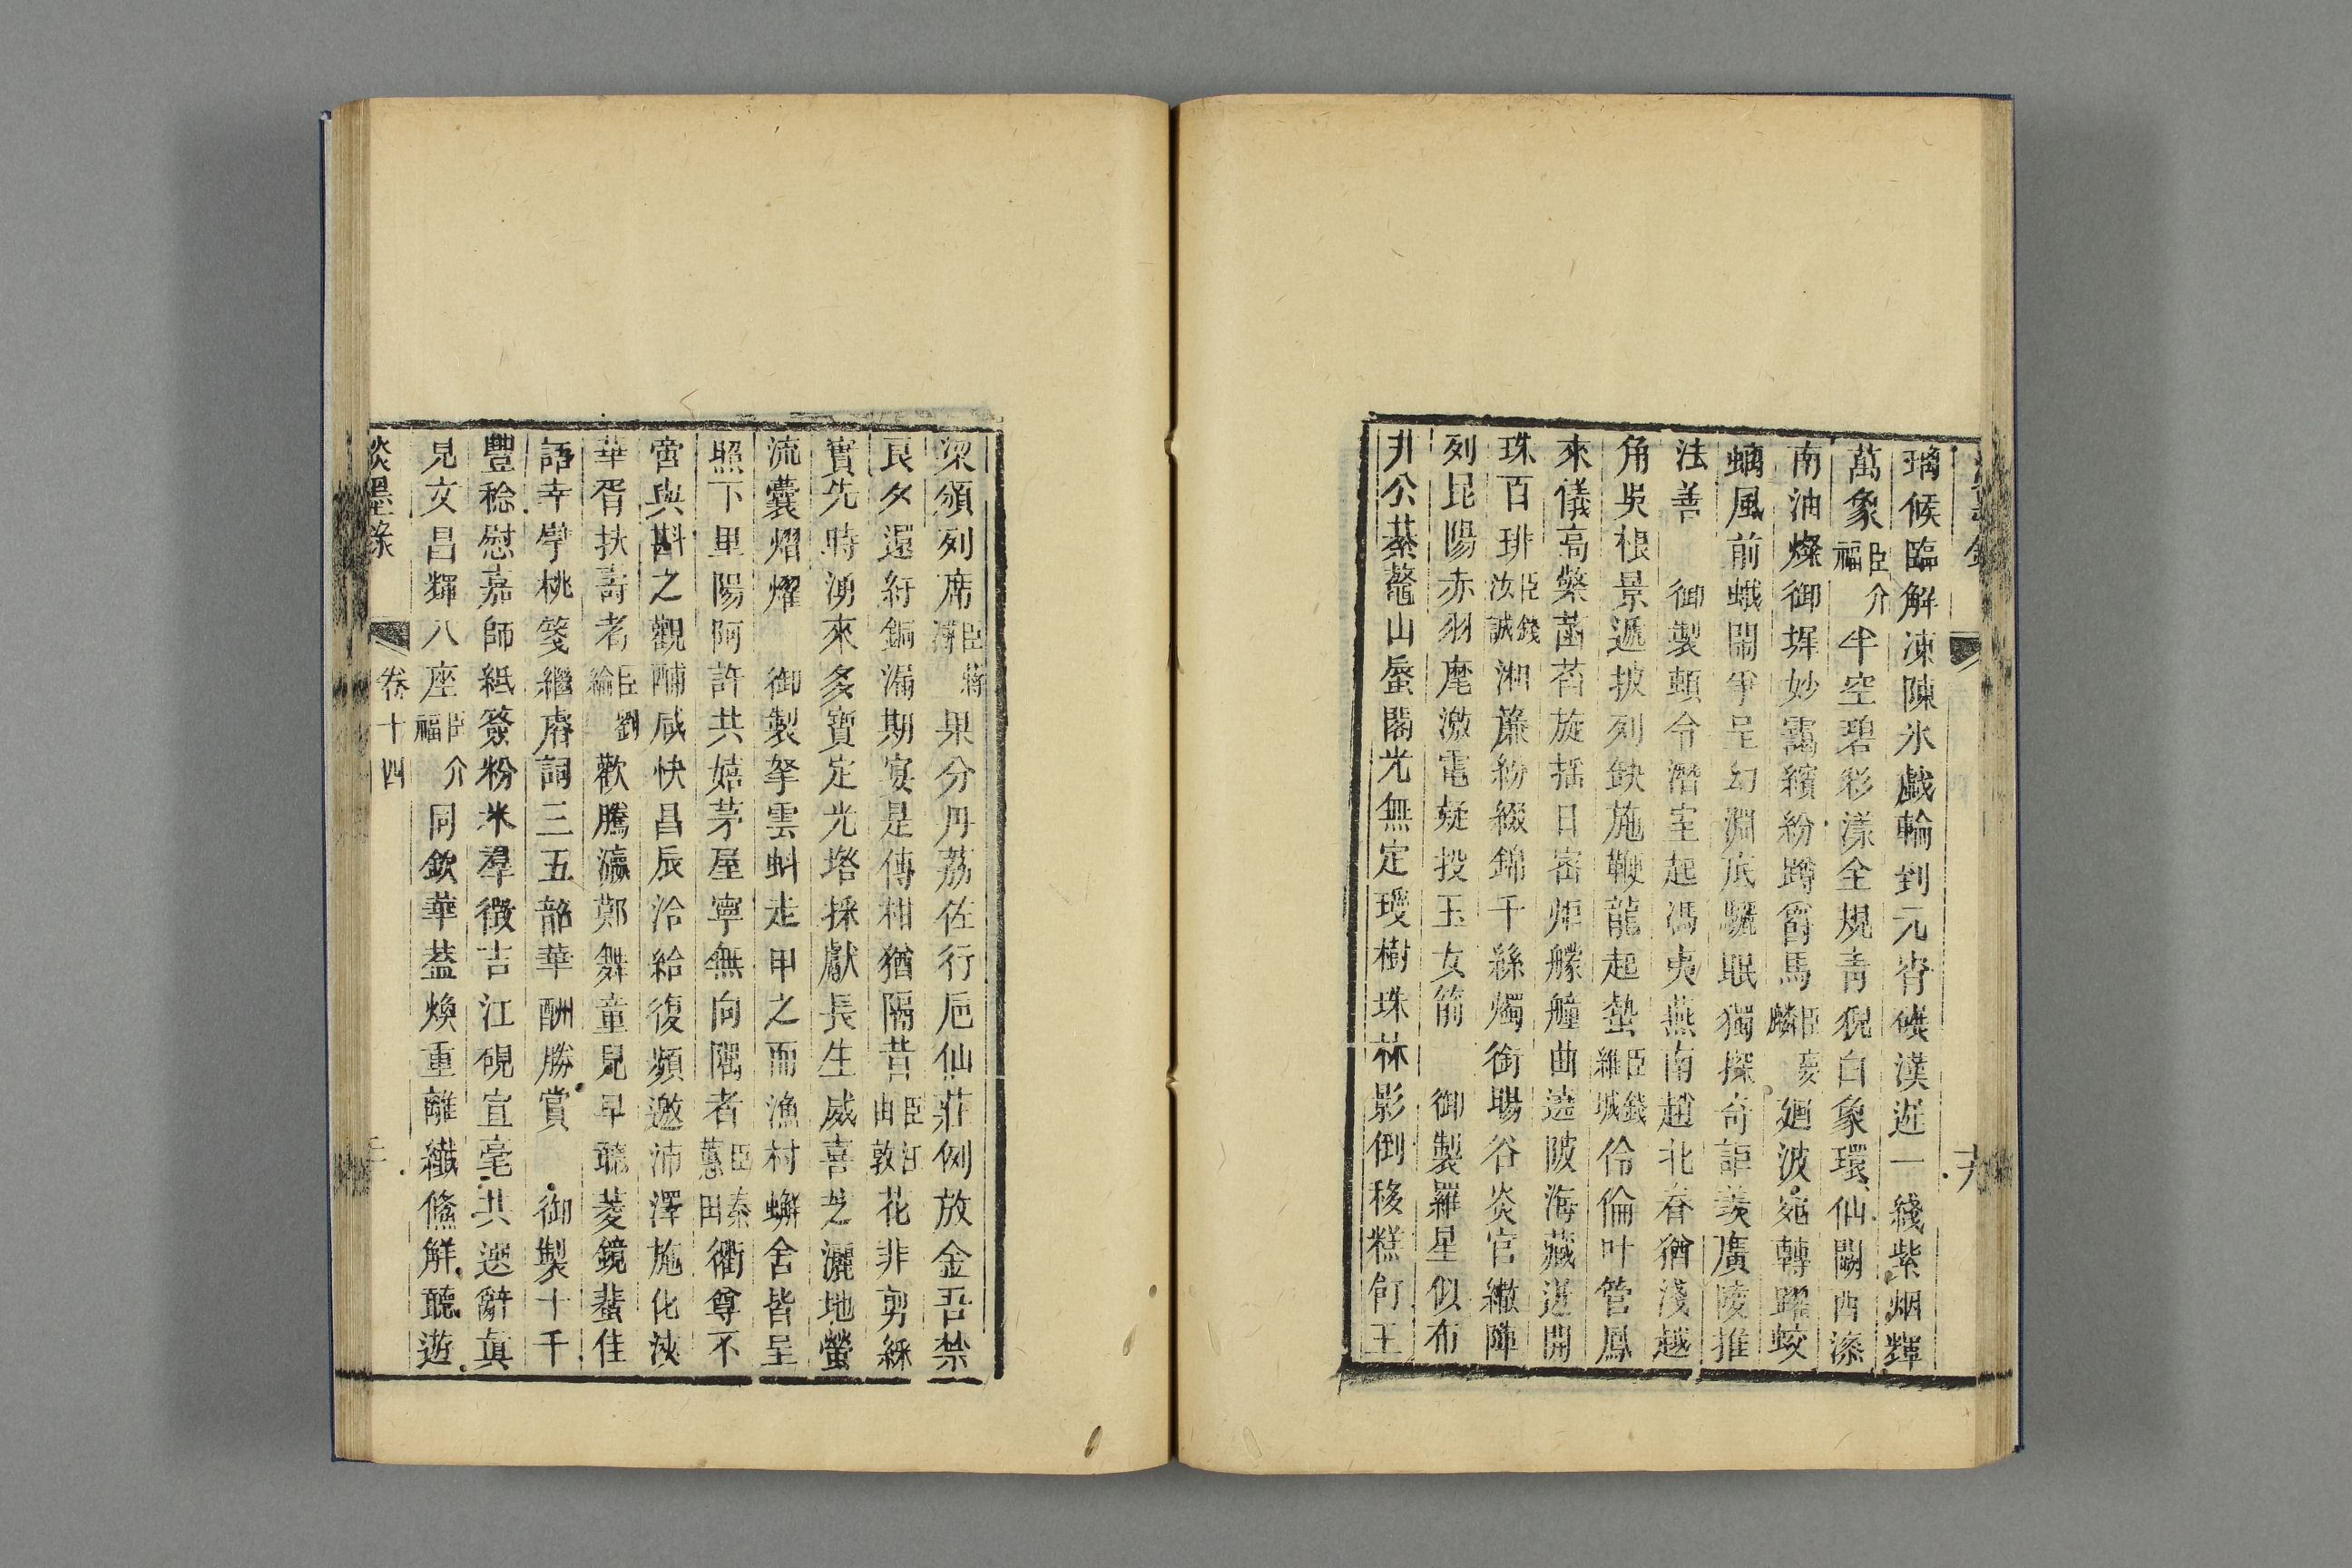 璃候臨解凍陳氷戲輪到元宵礮漢近一綫紫烟輝
萬象臣介福半空碧彩漾全規青猊白象環仙闕西漆
南油燦御墀妙靄繽紛蹲舀馬臣慶麟廻波宛轉躍蛟
螭風前蛾鬧爭呈幻淵底驪眠獨探奇詎羨廣陵推
法善 御製頼令潛室起馮夷燕南趙北春猶淺越
角吳根景遞披列缺施鞭龍起蟄臣錢維城伶倫叶管鳳
來儀高縈菡萏旋揺日密炬艨艟曲遶陂海藏迸開
珠百琲臣錢汝誠湘簾紛綴錦千絲燭銜暘谷炎官繖陣
列昆陽赤羽麾激電疑投玉女箭 御製羅星似布
井公棊鼇山蜃閣光無定瓊樹珠林影倒移糕飣王
梁頒列席臣蔣溥果分丹荔佐行巵仙莊例放金吾禁
良夕還紆銅漏期宴是傳柑猶隔昔臣汪由敦花非剪綵
實先時湧來多寶定光塔採獻長生威喜芝灑地螢
流囊熠燿 御製拏雲虯走甲之而漁村蠏舍皆呈
照下里陽阿許共嬉茅屋寧無向隅者臣秦蕙田衢尊不
啻與斟之觀酺咸快昌辰洽給復頻邀沛澤施化浹
華胥扶壽者臣劉綸歡騰瀛鄭舞童兒早聽菱鏡蜚佳
語幸學桃箋繼膚詞三五韶華酬勝賞 御製十千
豐稔慰嘉師紙簽粉米羣徴吉江硯宣毫共選辭眞
見文昌輝八座臣介福同欽華葢煥重離纖鯈解聽遊
淡墨錄 卷十四